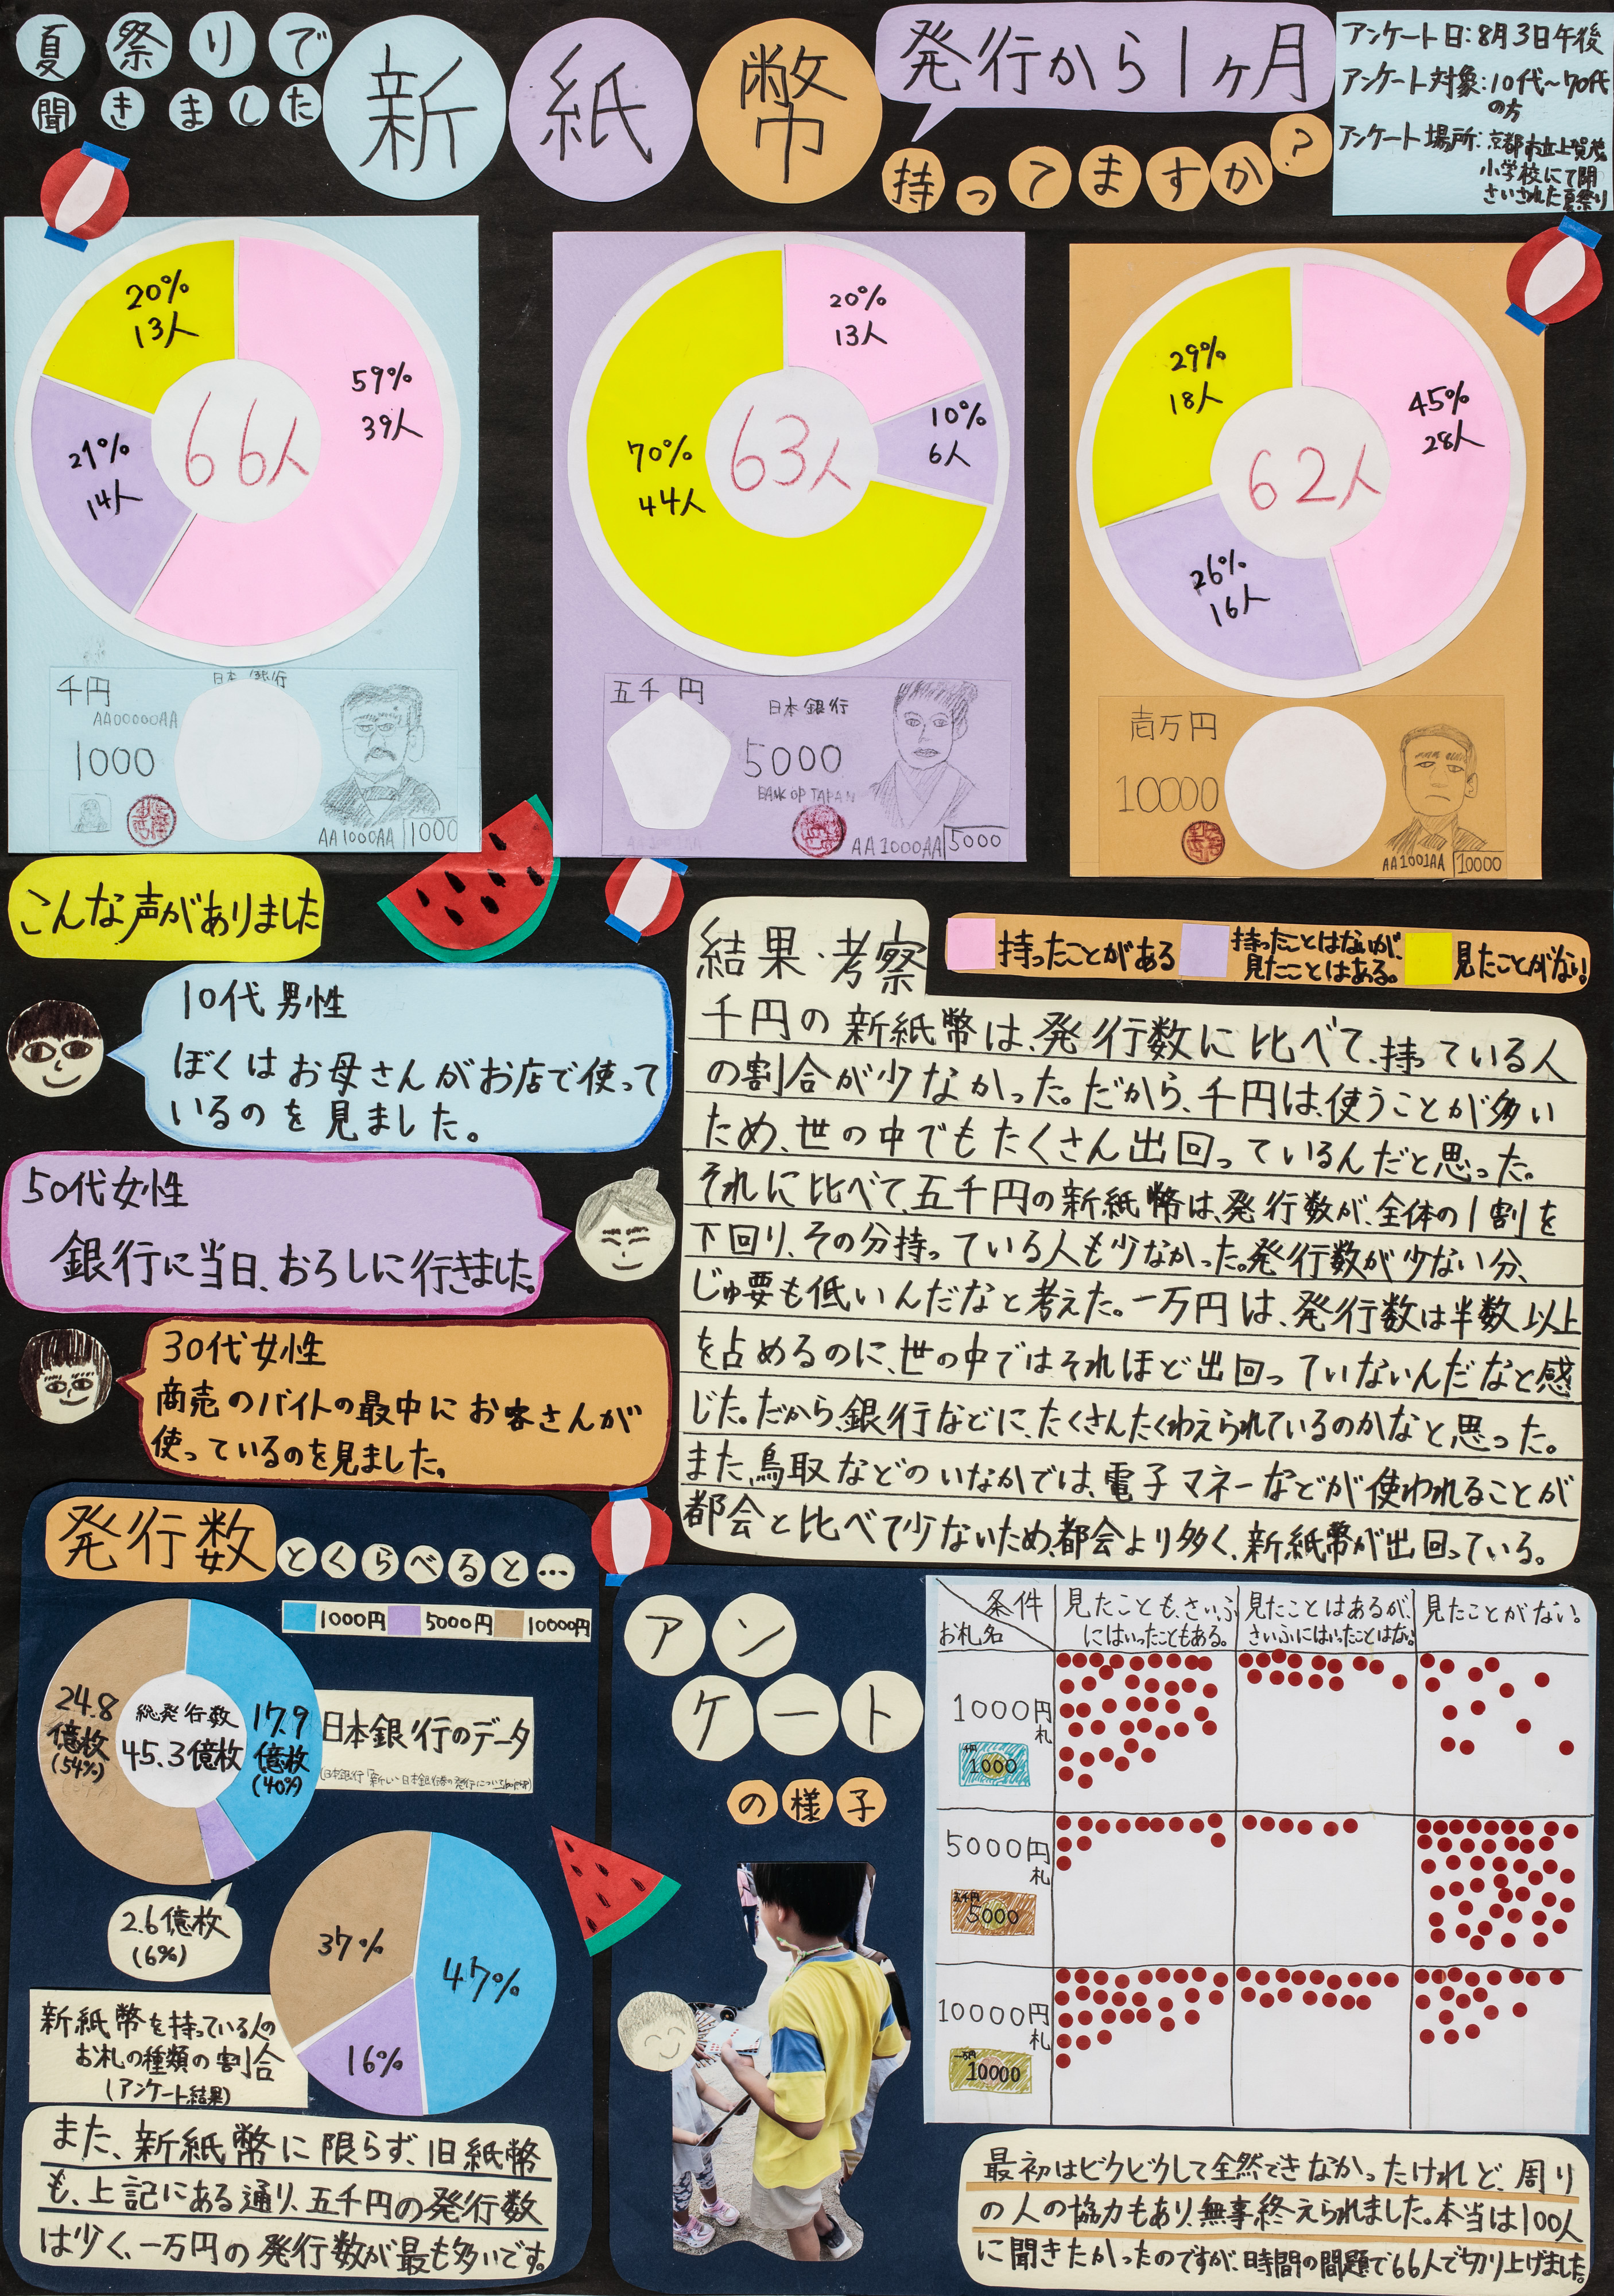 夏祭りで
聞きました
新紙幣
発行から1ヶ月
持ってますか?
アンケート日:8月3日午後
アンケート対象:10代〜70代
の方
アンケート場所:京都市立上賀茂
小学校にて開
さいされた夏祭り
20%
13人
59%
39人
21%
14人
66人
20%
13人
10%
6人
70%
44人
63人
29%
18人
45%
28人
26%
16人
62人
千円
日本銀行
AA00000AA
1000
AA1000AA
1000
五千円
日本銀行
5000
BANK OF JAPAN
AA1000AA
5000
壱万円
10000
AA1001AA
10000
こんな声がありました
10代男性
ぼくはお母さんがお店で使って
いるのを見ました。
50代女性
銀行に当日、おろしに行きました。
30代女性
商売のバイトの最中にお客さんが
使っているのを見ました。
持ったことがある
持ったことはないが、
見たことはある。
見たことがない!
結果・考察
千円の新紙幣は、発行数に比べて、持っている人
の割合が少なかった。だから、千円は、使うことが多い
ため、世の中でもたくさん出回っているんだと思った。
それに比べて、五千円の新紙幣は、発行数が、全体の1割を
下回り、その分持っている人も少なかった。発行数が少ない分、
じゅ要も低いんだなと考えた。一万円は、発行数は半数以上
を占めるのに、世の中ではそれほど出回っていないんだなと感
じた。だから、銀行などに、たくさんたくわえられているのかなと思った。
また、鳥取などのいなかでは、電子マネーなどが使われることが
都会と比べて少ないため、都会より多く、新紙幣が出回っている。
発行数とくらべると…
1000円
5000円
10000円
24.8
億枚
(54%)
総発行数
45.3億枚
17.9
億枚
(40%)
2.6億枚
(6%)
日本銀行のデータ
37%
47%
16%
新紙幣を持っている人の
お札の種類の割合
(アンケート結果)
また、新紙幣に限らず、旧紙幣
も、上記にある通り、五千円の発行数
は少く、一万円の発行数が最も多いです。
アンケートの様子
条件
お札名
見たことも、さいふ
にはいったこともある。
見たことはあるが、
さいふにはいったことはない。
見たことがない!
1000円
札
千円
1000
5000円
札
五千円
5000
10000円
札
一万円
10000
最初はビクビクして全然できなかったけれど、周り
の人の協力もあり、無事終えられました。本当は100人
に聞きたかったのですが、時間の問題で66人で切り上げました。